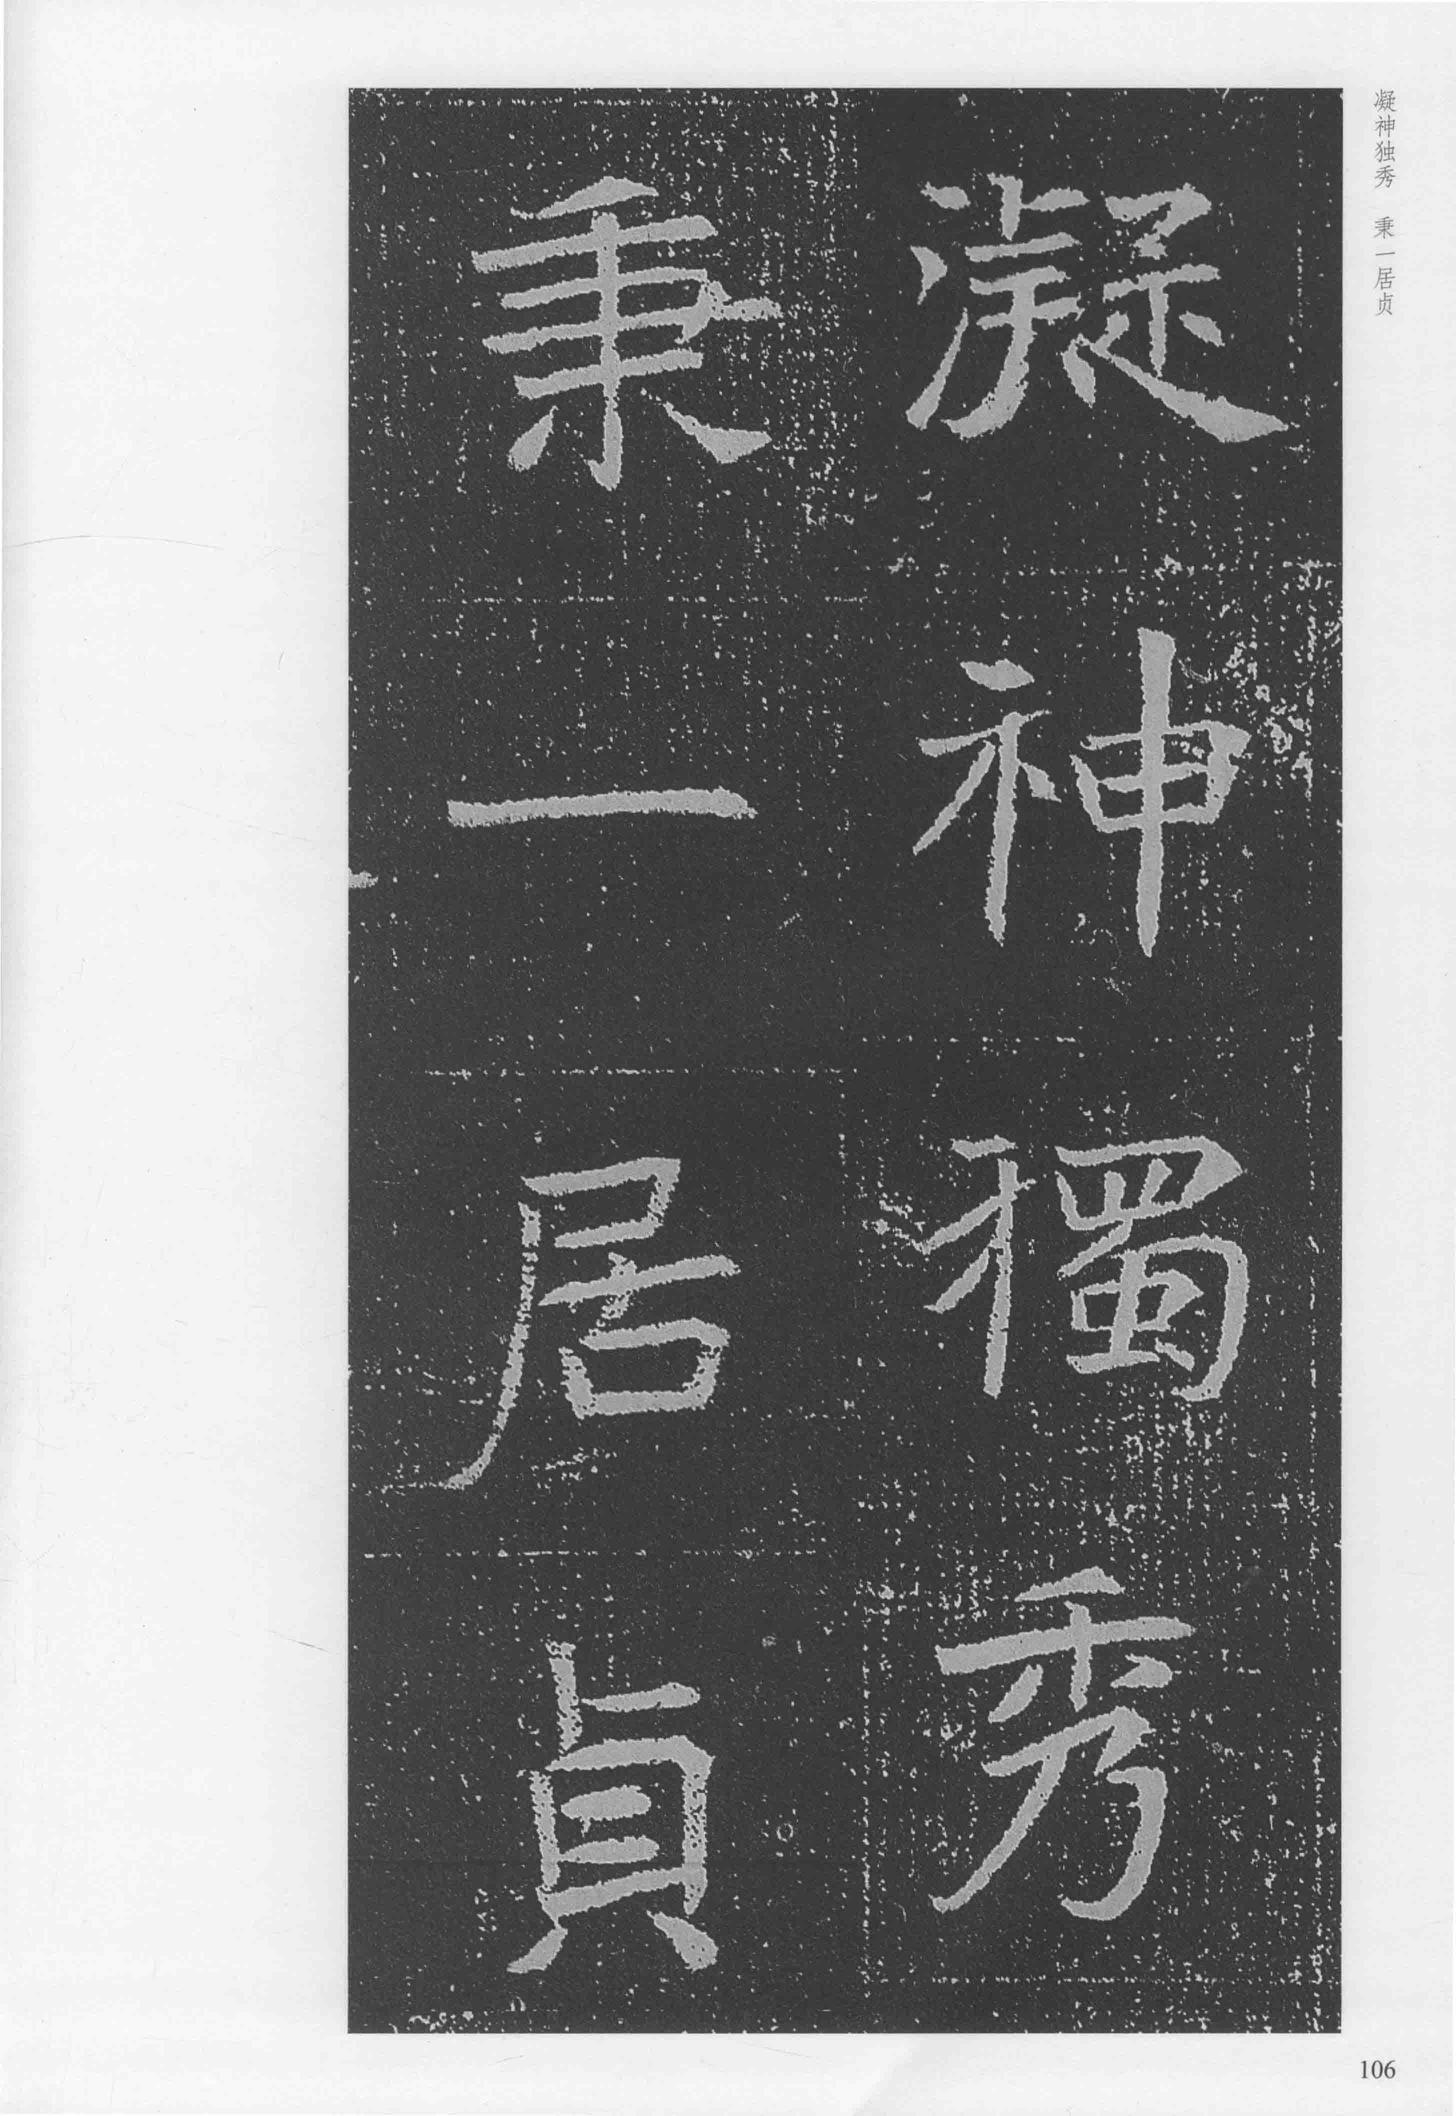 凝神独秀 秉一居贞
凝神獨秀
秉一居貞
106